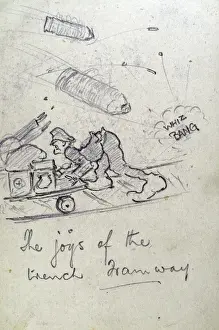 WHIZ
BANG
The joys of the
trench Tramway.